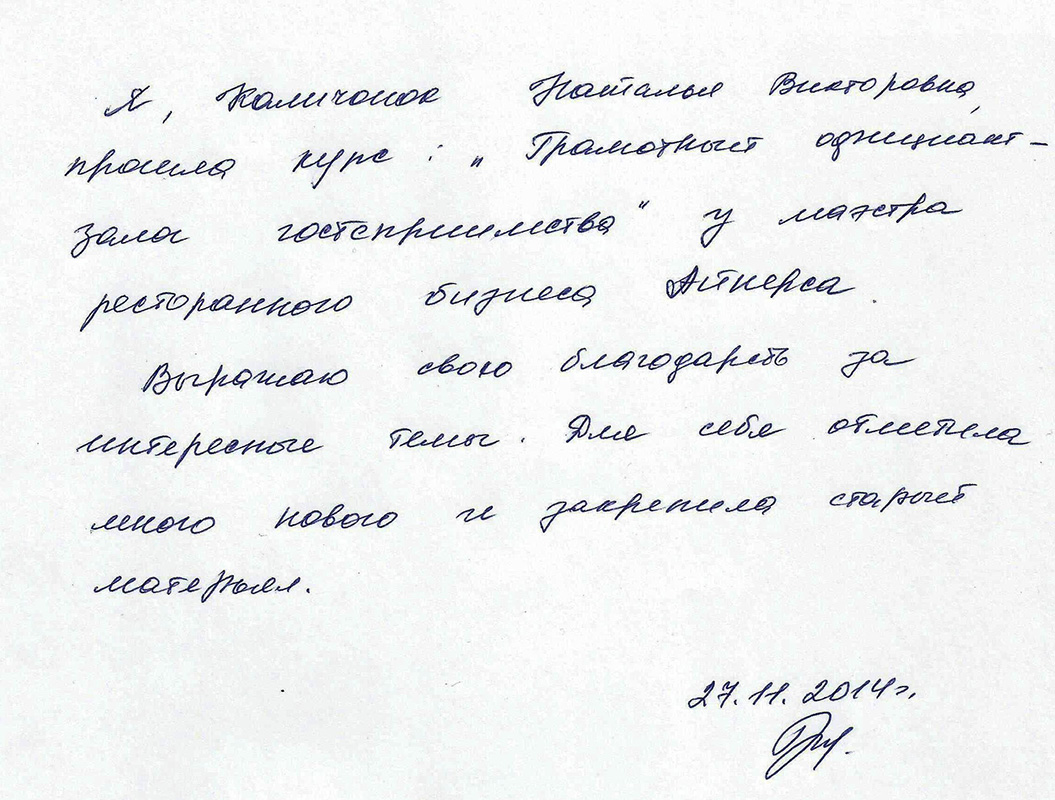 Я, Каличонок Наталья Викторовна,
прошла курс: „Грамотный официант-
залог гостеприимства" у маэстра
ресторанного бизнеса Айнерса.
Выражаю свою благодарсть за
интересные темы. Для себя отметила
много нового и закрепила старый
матерьял.
27.11.2014г.